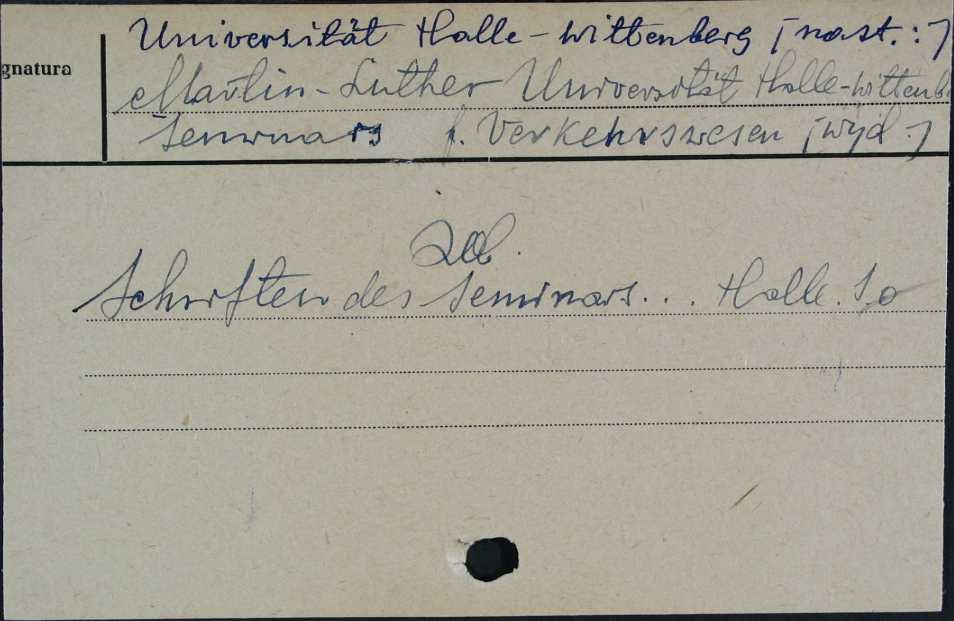 Universität Halle-Wittenberg [nast.:]
gnatura
Martin-Luther Universität Halle-Wittenb
Seminars f. Verkehrswesen [wyd.]
Zob.
Schriften des Seminars... Halle. 8o